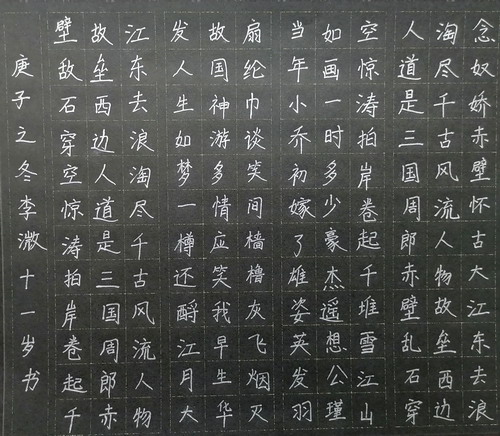 念奴娇赤壁怀古大江东去浪
淘尽千古风流人物故垒西边
人道是三国周郎赤壁乱石穿
空惊涛拍岸卷起千堆雪江山
如画一时多少豪杰遥想公瑾
当年小乔初嫁了雄姿英发羽
扇纶巾谈笑间樯橹灰飞烟灭
故国神游多情应笑我早生华
发人生如梦一樽还酹江月大
江东去浪淘尽千古风流人物
故垒西边人道是三国周郎赤
壁敌石穿空惊涛拍岸卷起千
庚子之冬李溦十一岁书